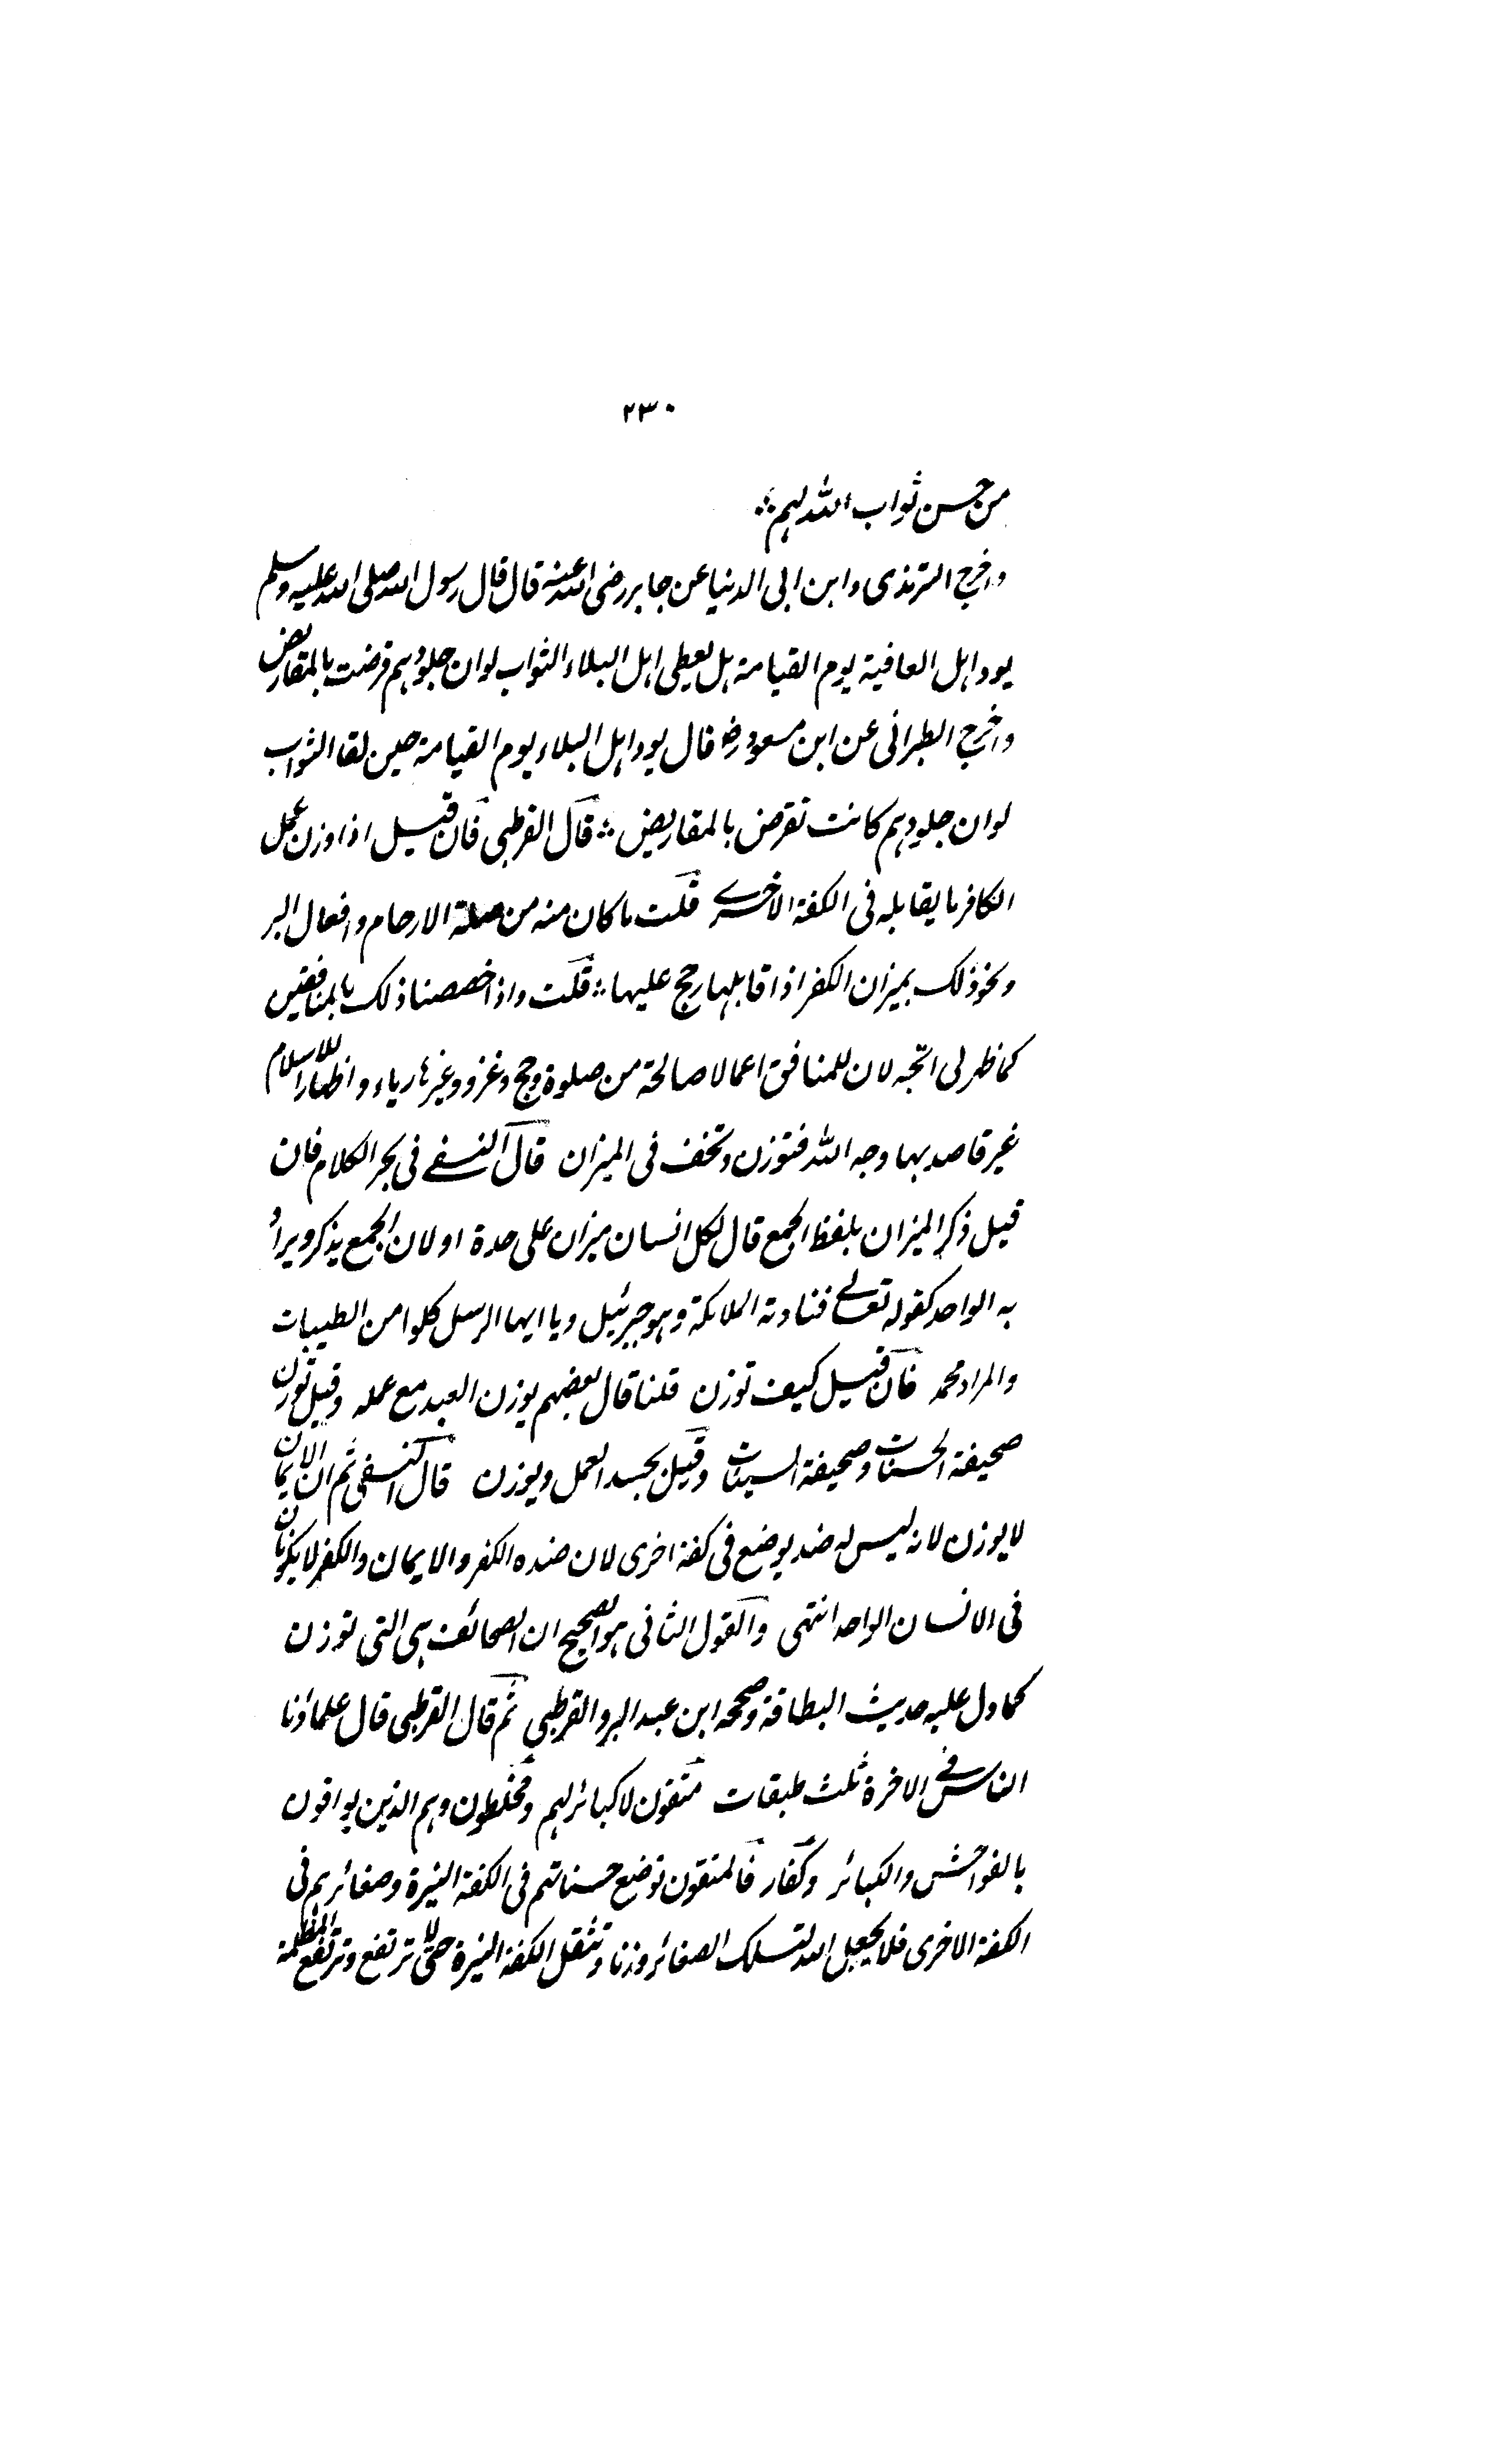 ۲۳۰
من حسن ثواب الله لهم ؞
واخرج الترمذی وابن ابی الدنیا عن جابر رضی الله عنه قال قال رسول الله صلی الله علیه وسلم
یود اہل العافیۃ یوم القیامۃ ہل یعطی اہل البلاء الثواب لوان جلودہم قرضت بالمقاریض
واخرج الطبرانی عن ابن مسعود رض قال یود اہل البلاء یوم القیامۃ حین لقا الثواب
لوان جلودہم کانت تقرض بالمقاریض ؞ قال القرطبی فان قیل اذا وزن عمل
الکافر ما یقابله فی الکفۃ الاخرے قلت ما کان منه من صلۃ الارحام وافعال البر
ونحو ذلک بمیزان الکفر اذا قابلہا رجح علیہا ؞ قلت واذا خصصنا ذلک بالمنافقین
کما ظہر لی اتجہ لان للمنافق اعمالا صالحۃ من صلوۃ وحج وغزو وغیرہا ریاء واظہار للاسلام
غیر قاصد بہا وجه الله فتوزن وتخف فی المیزان قال النسفے فی بحر الکلام فان
قیل ذکر المیزان بلفظ الجمع قال لکل انسان میزان علی حدۃ او لان الجمع یذکر ویراد
به الواحد کقوله تعالے فنادته الملائکۃ وہو جبرئیل ویا ایہا الرسل کلوا من الطیبات
والمراد محمد فان قیل کیف توزن قلنا قال بعضہم یوزن العبد مع عمله وقیل توزن
صحیفۃ الحسنات وصحیفۃ السیئات وقیل یجسد العمل ویوزن قال النسفی ثم ان الایمان
لا یوزن لانه لیس له ضد یوضع فی کفۃ اخری لان ضدہ الکفر والایمان والکفر لا یکونان
فی الانسان الواحد انتہی والقول الثانی ہو الصحیح ان الصحائف ہی التی توزن
کما دل علیه حدیث البطاقۃ وصححه ابن عبد البر والقرطبی ثم قال القرطبی قال علماؤنا
الناس فے الاخرۃ ثلث طبقات متقون لا کبائر لہم ومخلطون وہم الذین یوافون
بالفواحش والکبائر وکفار فالمتقون توضع حسناتہم فی الکفۃ النیرۃ وصغائرہم فی
الکفۃ الاخری فلا یجعل الله لتلک الصغائر وزنا وتثقل الکفۃ النیرۃ حتی لا ترتفع وترتفع المظلمۃ